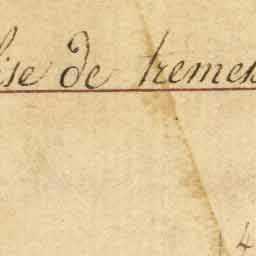 lise de tremes
4